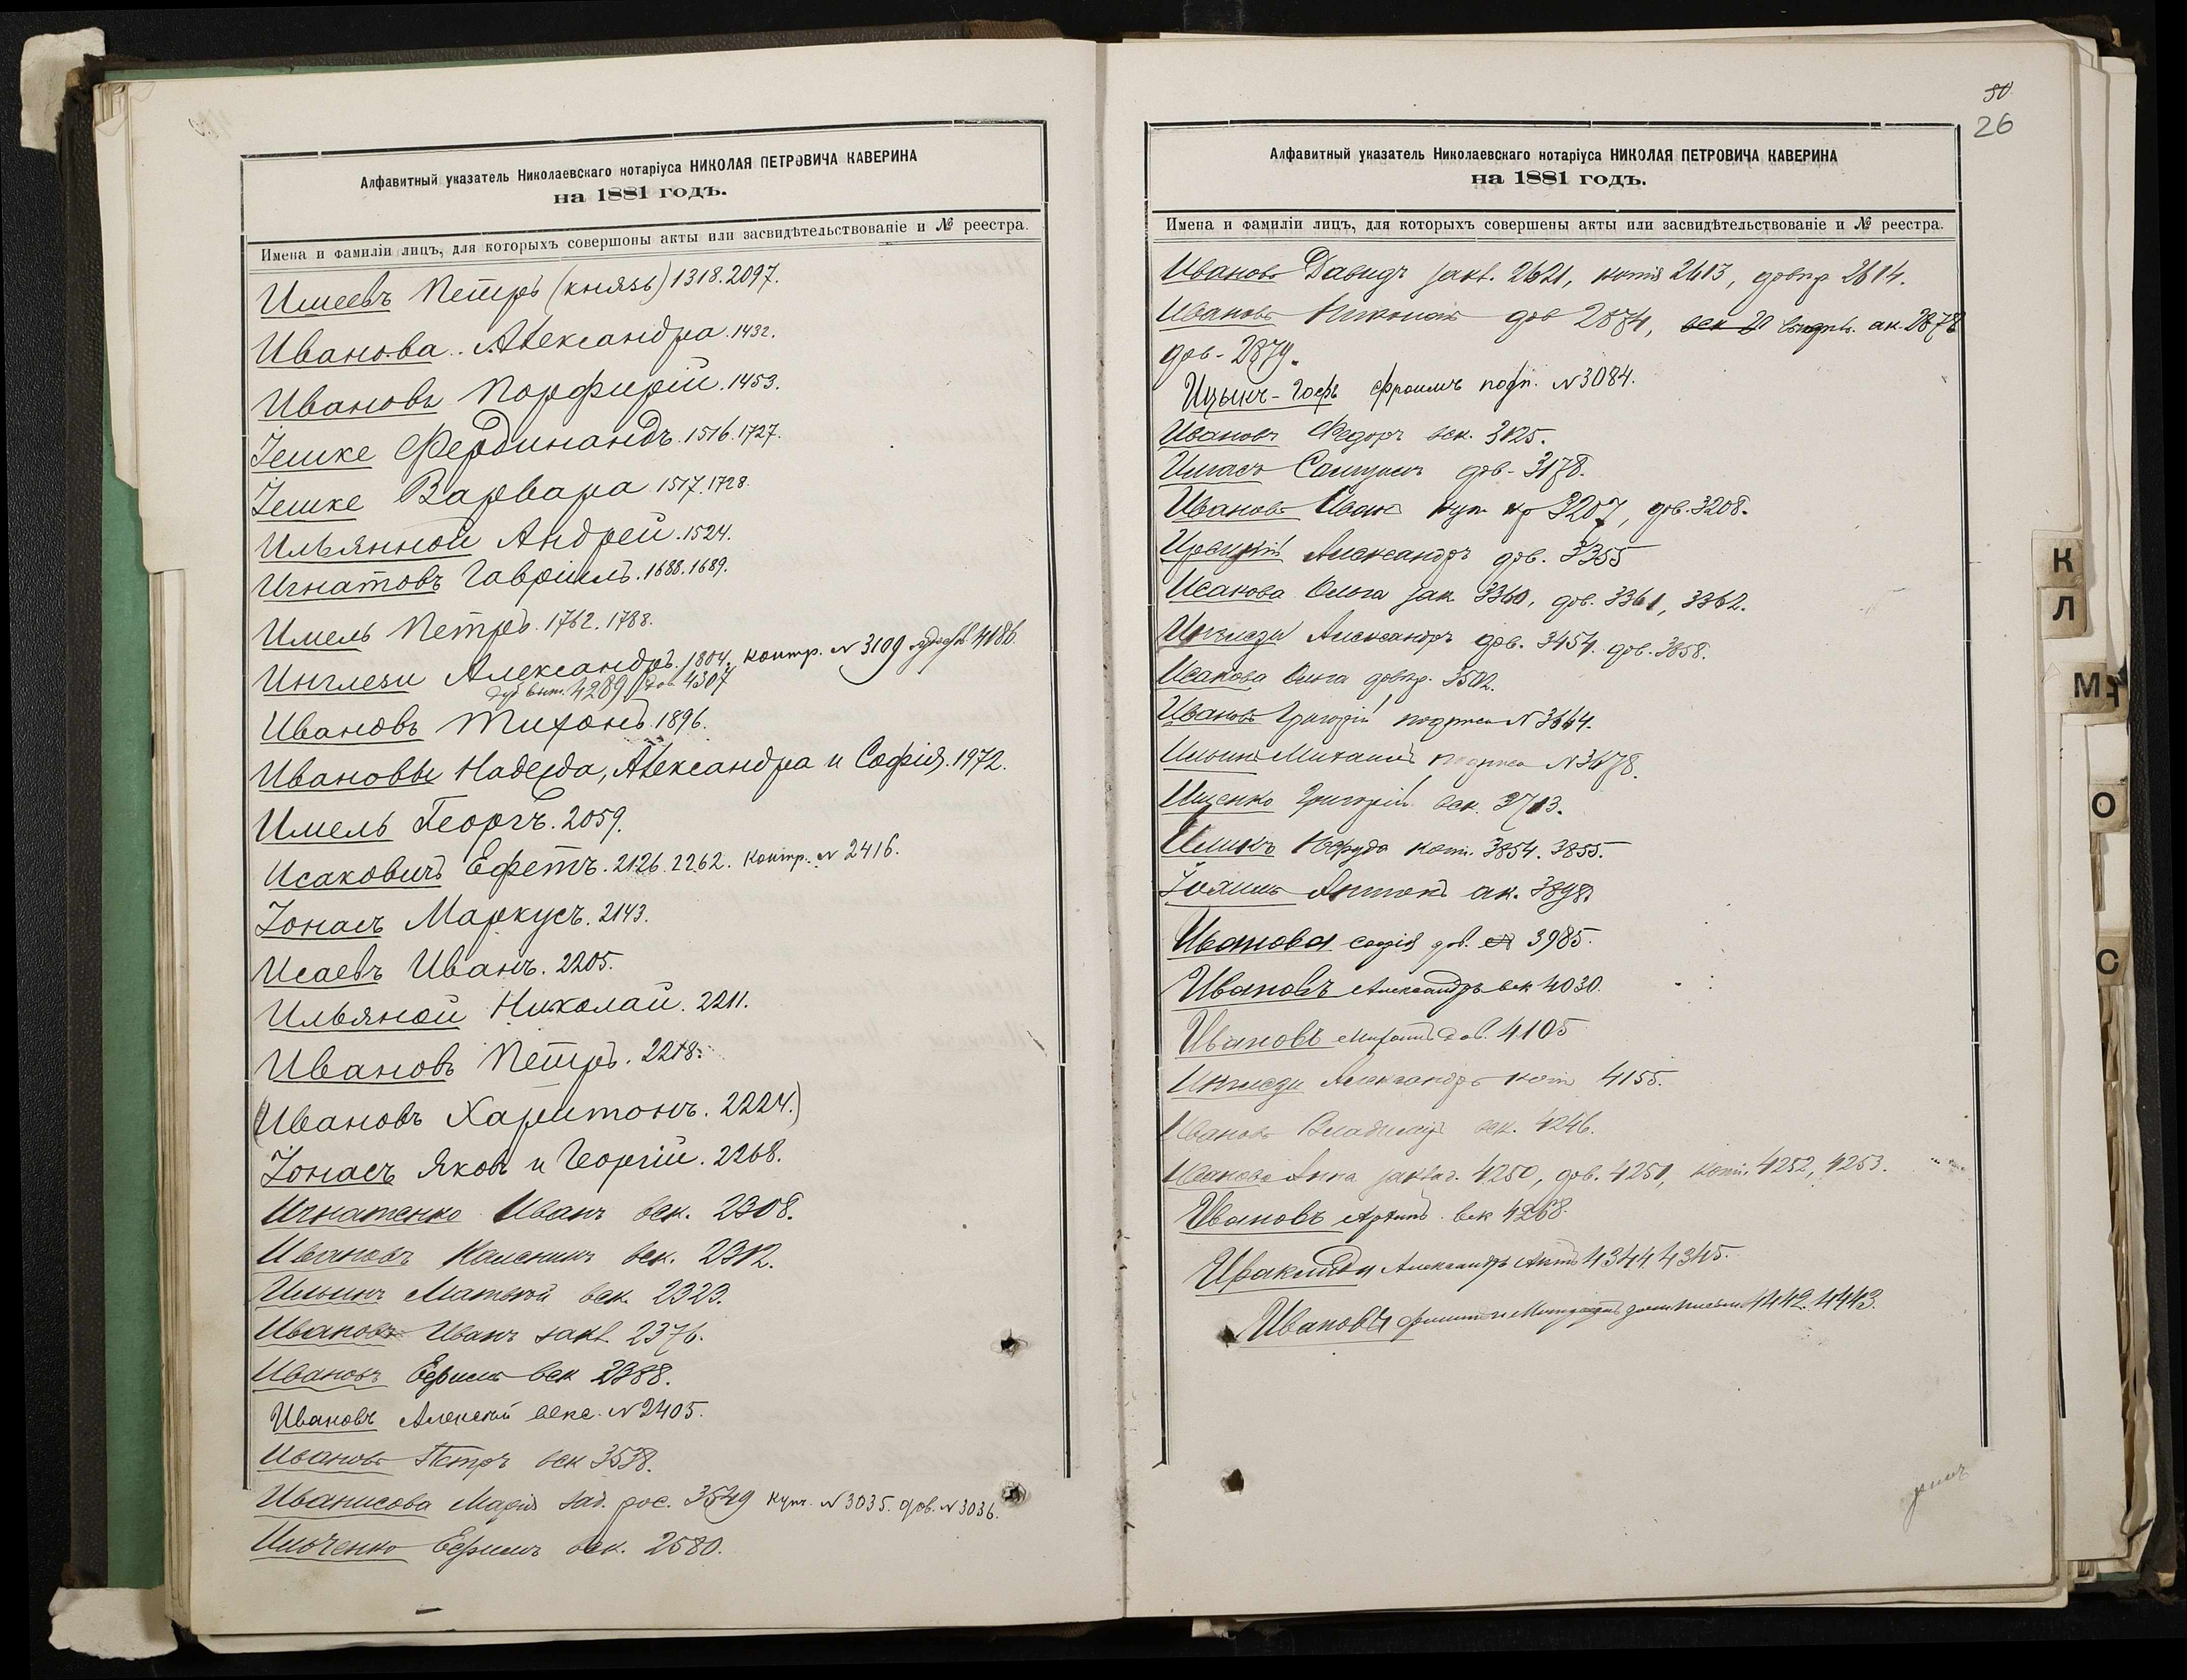 Алфавитный указатель Николаевскаго нотаріуса НИКОЛАЯ ПЕТРОВИЧА КАВЕРИНА
на 1881 годъ.
Имена и фамиліи лицъ, для которыхъ совершоны акты или засвидѣтельствованіе и № реестра.
Имеевъ Петръ (князь) 1318. 2097.
Иванова Александра. 1432.
Ивановъ Порфирій. 1453.
Іешке Фердинандъ. 1516. 1727.
Іешке Варвара 1517. 1728.
Ильянной Андрей. 1524.
Игнатовъ Гавріилъ. 1688. 1689.
Имель Петръ. 1762. 1788.
Инглези Александръ. 1804. контр. N 3109 4186.
4289 дов. 4307
Ивановъ Тихонъ. 1896.
Ивановы Надежда, Александра и Софія. 1972.
Имель Георгъ. 2059.
Исаковичъ Ефетъ. 2126. 2262. контр. N 2416.
Іонасъ Маркусъ. 2143.
Исаевъ Иванъ. 2205.
Ильяной Николай. 2211.
Ивановъ Петръ. 2218.
(Ивановъ Харитонъ. 2224.)
Іонасъ Яковъ и Георгій. 2268.
Игнатенко Иванъ век. 2308.
Ивановъ век. 2312.
Ильинъ Матвѣй век. 2323.
Ивановъ Иванъ 2376.
Ивановъ Ефимъ век 2388.
Ивановъ Алексѣй векс. N 2405.
Ивановъ Петръ век 3538.
Иванисова Марія 3549 купч. N 3035. дов. N 3036.
Ильченко Ефимъ век. 2580.
50
26
Алфавитный указатель Николаевскаго нотаріуса НИКОЛАЯ ПЕТРОВИЧА КАВЕРИНА
на 1881 годъ.
Имена и фамиліи лицъ, для которыхъ совершены акты или засвидѣтельствованіе и № реестра.
Ивановъ Давидъ 2621, копія 2613, 2614.
Ивановъ дов 2874, ак. 2878
дов. 2879.
Ицынъ-Гофъ Фроимъ подп. N 3084.
Ивановъ Федоръ век. 3125.
дов. 3178.
Ивановъ Иванъ 3207, дов. 3208.
Александръ дов. 3355
Исакова Ольга 3360, дов. 3361, 3362.
Инглези Александръ дов. 3454. дов. 3858.
Исакова Ольга 3502.
Ивановъ Григорій подписи N 3664.
Ильинъ Михаилъ подписи N 3678.
Ищенко Григорій век. 3713.
копі. 3854. 3855.
Антонъ ак. 3898
Иванова Софія дов. 3985.
Ивановъ Александръ век 4030.
Ивановъ дов. 4105
Инглези Александръ копі 4155.
Ивановъ Владиміръ век. 4246.
Анна 4250, дов. 4251, копі. 4252, 4253.
Ивановъ Архипъ век 4268.
Ираклиди Александръ 4344 4345.
Ивановы 4442. 4443.
К
Л
М
О
С